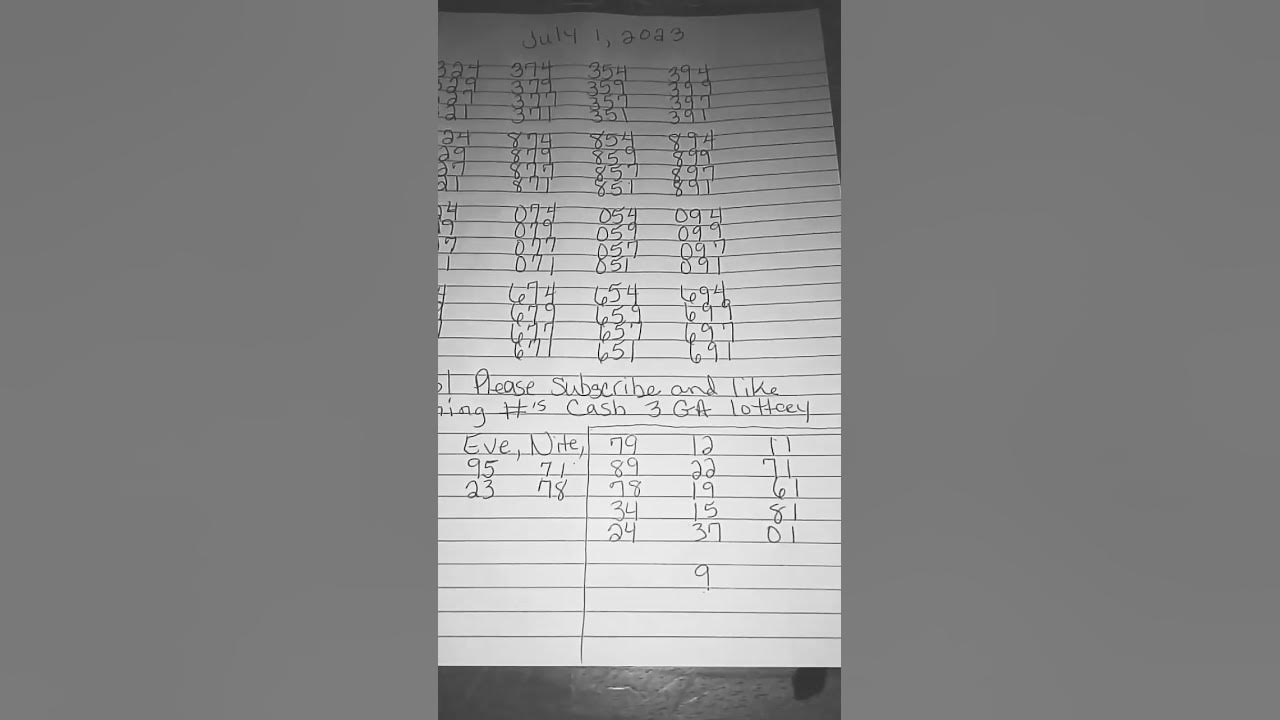 July 1, 2023
324 374 354 394
329 379 359 399
27 377 357 397
21 371 351 391
24 874 854 894
29 879 859 899
27 877 857 897
21 871 851 891
4 074 054 094
9 079 059 099
7 077 057 097
1 071 851 091
4 674 654 694
679 659 699
677 657 697
671 651 691
! Please Subscribe and like
ning #'s Cash 3 GA lottery
Eve, Nite, 79 12 11
95 71 89 22 71
23 78 78 19 61
34 15 81
24 37 01
9